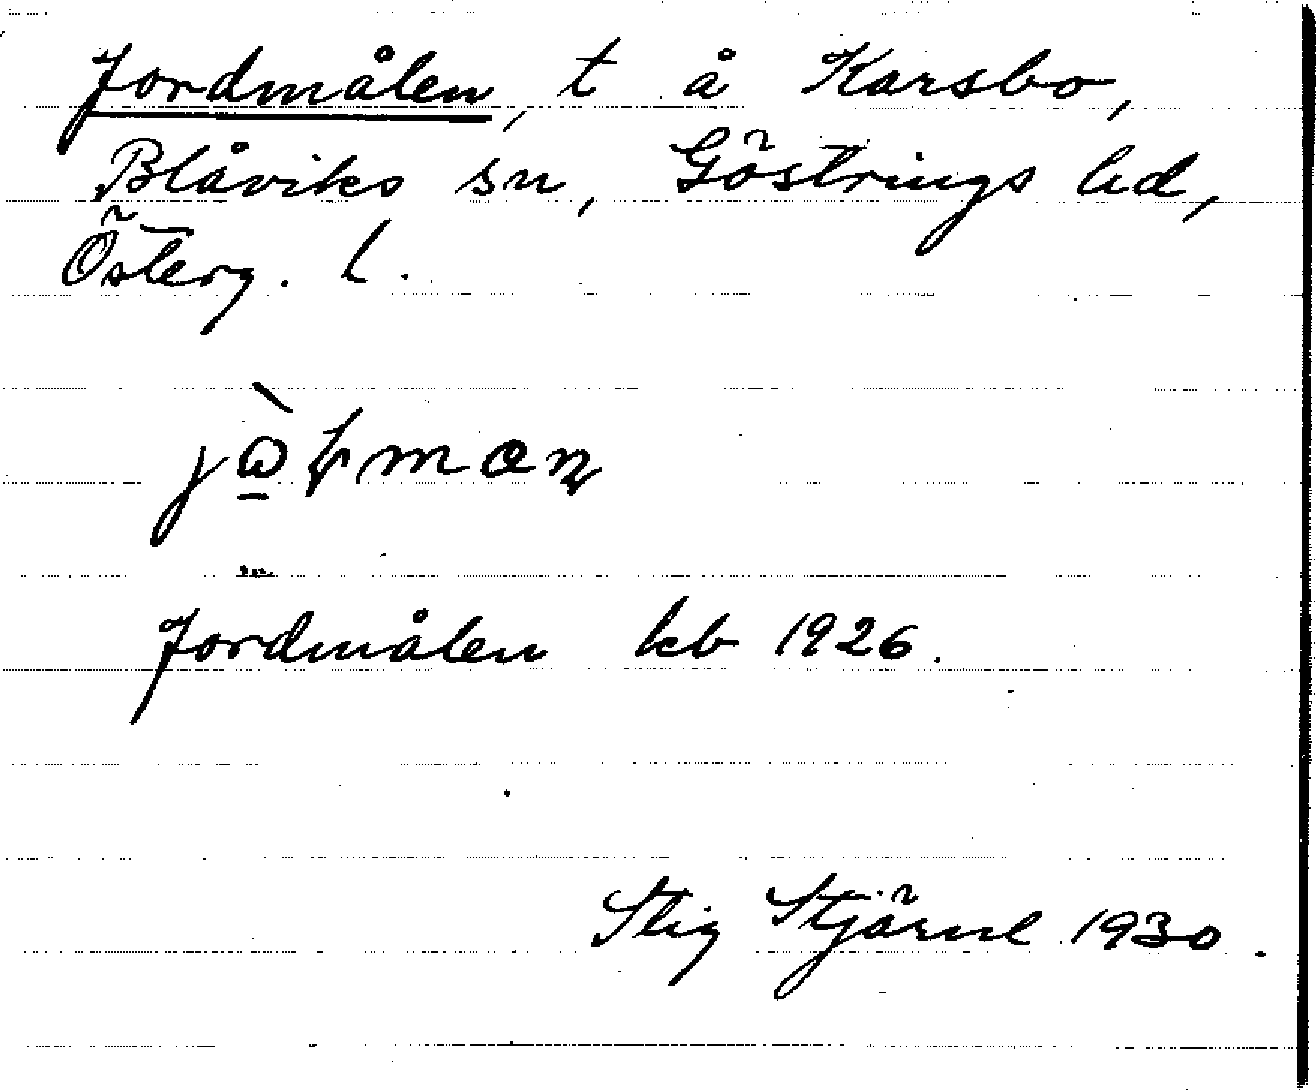 Jordmålen, t å Karsbo,
Blåviks sn, Göstrings hd,
Österg. l.
Jordmålen kb 1926.
Stig Stjärne 1930.